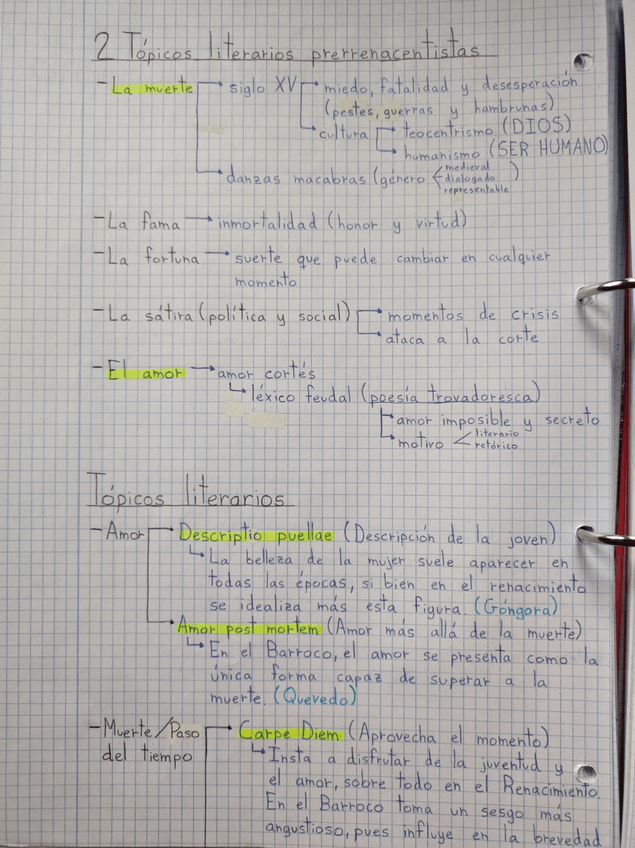 2 Tópicos literarios prerrenacentistas
- La muerte → siglo XV → miedo, fatalidad y desesperación
(pestes, guerras y hambrunas)
→ cultura → teocentrismo (DIOS)
→ humanismo (SER HUMANO)
→ danzas macabras (género < medieval
dialogado
representable )
- La fama → inmortalidad (honor y virtud)
- La fortuna → suerte que puede cambiar en cualquier
momento
- La sátira (política y social) → momentos de crisis
→ ataca a la corte
- El amor → amor cortés
↳ léxico feudal (poesía trovadoresca)
→ amor imposible y secreto
→ motivo < literario
retórico
Tópicos literarios
- Amor → Descriptio puellae (Descripción de la joven)
↳ La belleza de la mujer suele aparecer en
todas las épocas, si bien en el renacimiento
se idealiza más esta figura. (Góngora)
→ Amor post mortem (Amor más allá de la muerte)
↳ En el Barroco, el amor se presenta como la
única forma capaz de superar a la
muerte. (Quevedo)
- Muerte/Paso → Carpe Diem (Aprovecha el momento)
del tiempo
↳ Insta a disfrutar de la juventud y
el amor, sobre todo en el Renacimiento.
En el Barroco toma un sesgo más
angustioso, pues influye en la brevedad